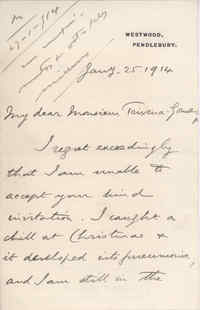 WESTWOOD,
PENDLEBURY.
Jany. 25 1914
My dear Monsieur
I regret exceedingly
that I am unable to
accept your kind
invitation. I caught a
chill at Christmas &
it developed into pneumonia,
and I am still in the